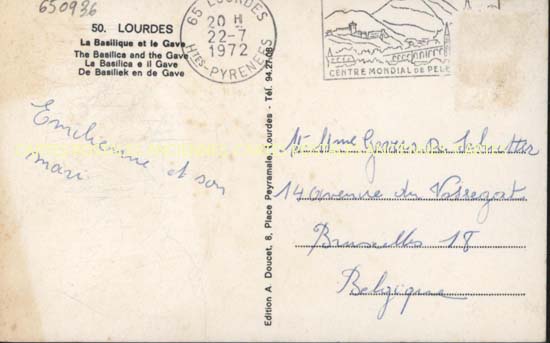 650936
50. LOURDES
La Basilique et le Gave
The Basilica and the Gave
La Basilica e il Gave
De Basiliek en de Gave
65 LOURDES
20 H
22-7
1972
HTES-PYRENEES
CENTRE MONDIAL DE PELE
Emelienne et son
mari
Edition A. Doucet, 8, Place Peyramale, Lourdes - Tél. 94.27-08
Mr Mme
14 avenue du
Bruxelles 18
Belgique